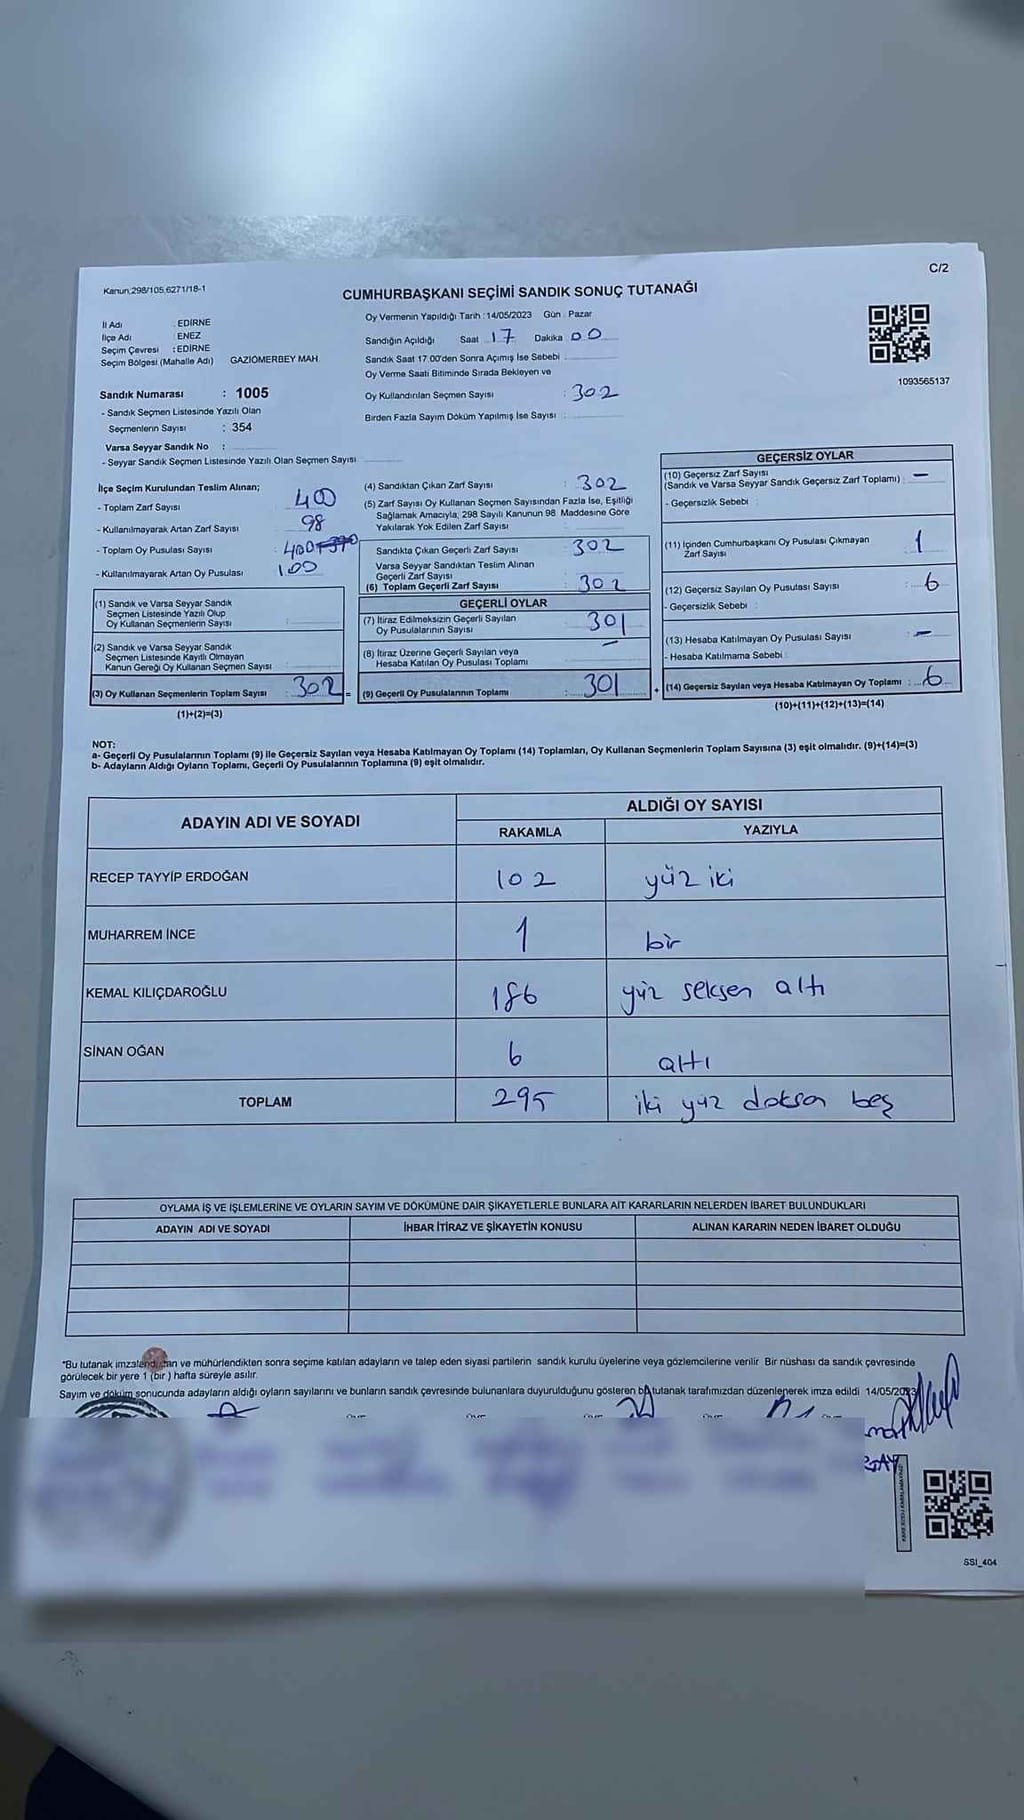 C/2
Kanun.298/105,6271/18-1
CUMHURBAŞKANI SEÇİMİ SANDIK SONUÇ TUTANAĞI
İl Adı : EDİRNE
İlçe Adı : ENEZ
Seçim Çevresi : EDİRNE
Seçim Bölgesi (Mahalle Adı) GAZİÖMERBEY MAH.
Sandık Numarası : 1005
- Sandık Seçmen Listesinde Yazılı Olan
Seçmenlerin Sayısı : 354
Varsa Seyyar Sandık No :
- Seyyar Sandık Seçmen Listesinde Yazılı Olan Seçmen Sayısı
Oy Vermenin Yapıldığı Tarih : 14/05/2023 Gün : Pazar
Sandığın Açıldığı Saat 17 Dakika 00
Sandık Saat 17:00'den Sonra Açımış İse Sebebi
Oy Verme Saati Bitiminde Sırada Bekleyen ve
Oy Kullandırılan Seçmen Sayısı : 302
Birden Fazla Sayım Döküm Yapılmış İse Sayısı :
1093565137
İlçe Seçim Kurulundan Teslim Alınan;
- Toplam Zarf Sayısı : 400
- Kullanılmayarak Artan Zarf Sayısı : 98
- Toplam Oy Pusulası Sayısı : 400
- Kullanılmayarak Artan Oy Pusulası : 100
(1) Sandık ve Varsa Seyyar Sandık
Seçmen Listesinde Yazılı Olup
Oy Kullanan Seçmenlerin Sayısı :
(2) Sandık ve Varsa Seyyar Sandık
Seçmen Listesinde Kayıtlı Olmayan
Kanun Gereği Oy Kullanan Seçmen Sayısı :
(3) Oy Kullanan Seçmenlerin Toplam Sayısı : 302 =
(1)+(2)=(3)
(4) Sandıktan Çıkan Zarf Sayısı : 302
(5) Zarf Sayısı Oy Kullanan Seçmen Sayısından Fazla İse, Eşitliği
Sağlamak Amacıyla; 298 Sayılı Kanunun 98. Maddesine Göre
Yakılarak Yok Edilen Zarf Sayısı :
Sandıkta Çıkan Geçerli Zarf Sayısı : 302
Varsa Seyyar Sandıktan Teslim Alınan
Geçerli Zarf Sayısı :
(6) Toplam Geçerli Zarf Sayısı : 302
GEÇERLİ OYLAR
(7) İtiraz Edilmeksizin Geçerli Sayılan
Oy Pusulalarının Sayısı : 301
(8) İtiraz Üzerine Geçerli Sayılan veya
Hesaba Katılan Oy Pusulası Toplamı : –
(9) Geçerli Oy Pusulalarının Toplamı : 301 +
GEÇERSİZ OYLAR
(10) Geçersiz Zarf Sayısı
(Sandık ve Varsa Seyyar Sandık Geçersiz Zarf Toplamı) : –
- Geçersizlik Sebebi :
(11) İçinden Cumhurbaşkanı Oy Pusulası Çıkmayan
Zarf Sayısı : 1
(12) Geçersiz Sayılan Oy Pusulası Sayısı : 6
- Geçersizlik Sebebi :
(13) Hesaba Katılmayan Oy Pusulası Sayısı : –
- Hesaba Katılmama Sebebi :
(14) Geçersiz Sayılan veya Hesaba Katılmayan Oy Toplamı : 6
(10)+(11)+(12)+(13)=(14)
NOT:
a- Geçerli Oy Pusulalarının Toplamı (9) ile Geçersiz Sayılan veya Hesaba Katılmayan Oy Toplamı (14) Toplamları, Oy Kullanan Seçmenlerin Toplam Sayısına (3) eşit olmalıdır. (9)+(14)=(3)
b- Adayların Aldığı Oyların Toplamı, Geçerli Oy Pusulalarının Toplamına (9) eşit olmalıdır.
ADAYIN ADI VE SOYADI ALDIĞI OY SAYISI
RAKAMLA YAZIYLA
RECEP TAYYİP ERDOĞAN 102 yüz iki
MUHARREM İNCE 1 bir
KEMAL KILIÇDAROĞLU 186 yüz seksen altı
SİNAN OĞAN 6 altı
TOPLAM 295 iki yüz doksan beş
OYLAMA İŞ VE İŞLEMLERİNE VE OYLARIN SAYIM VE DÖKÜMÜNE DAİR ŞİKAYETLERLE BUNLARA AİT KARARLARIN NELERDEN İBARET BULUNDUKLARI
ADAYIN ADI VE SOYADI İHBAR İTİRAZ VE ŞİKAYETİN KONUSU ALINAN KARARIN NEDEN İBARET OLDUĞU
*Bu tutanak imzalandıktan ve mühürlendikten sonra seçime katılan adayların ve talep eden siyasi partilerin sandık kurulu üyelerine veya gözlemcilerine verilir. Bir nüshası da sandık çevresinde
görülecek bir yere 1 (bir ) hafta süreyle asılır.
Sayım ve döküm sonucunda adayların aldığı oyların sayılarını ve bunların sandık çevresinde bulunanlara duyurulduğunu gösteren bu tutanak tarafımızdan düzenlenerek imza edildi. 14/05/2023
SSI_404